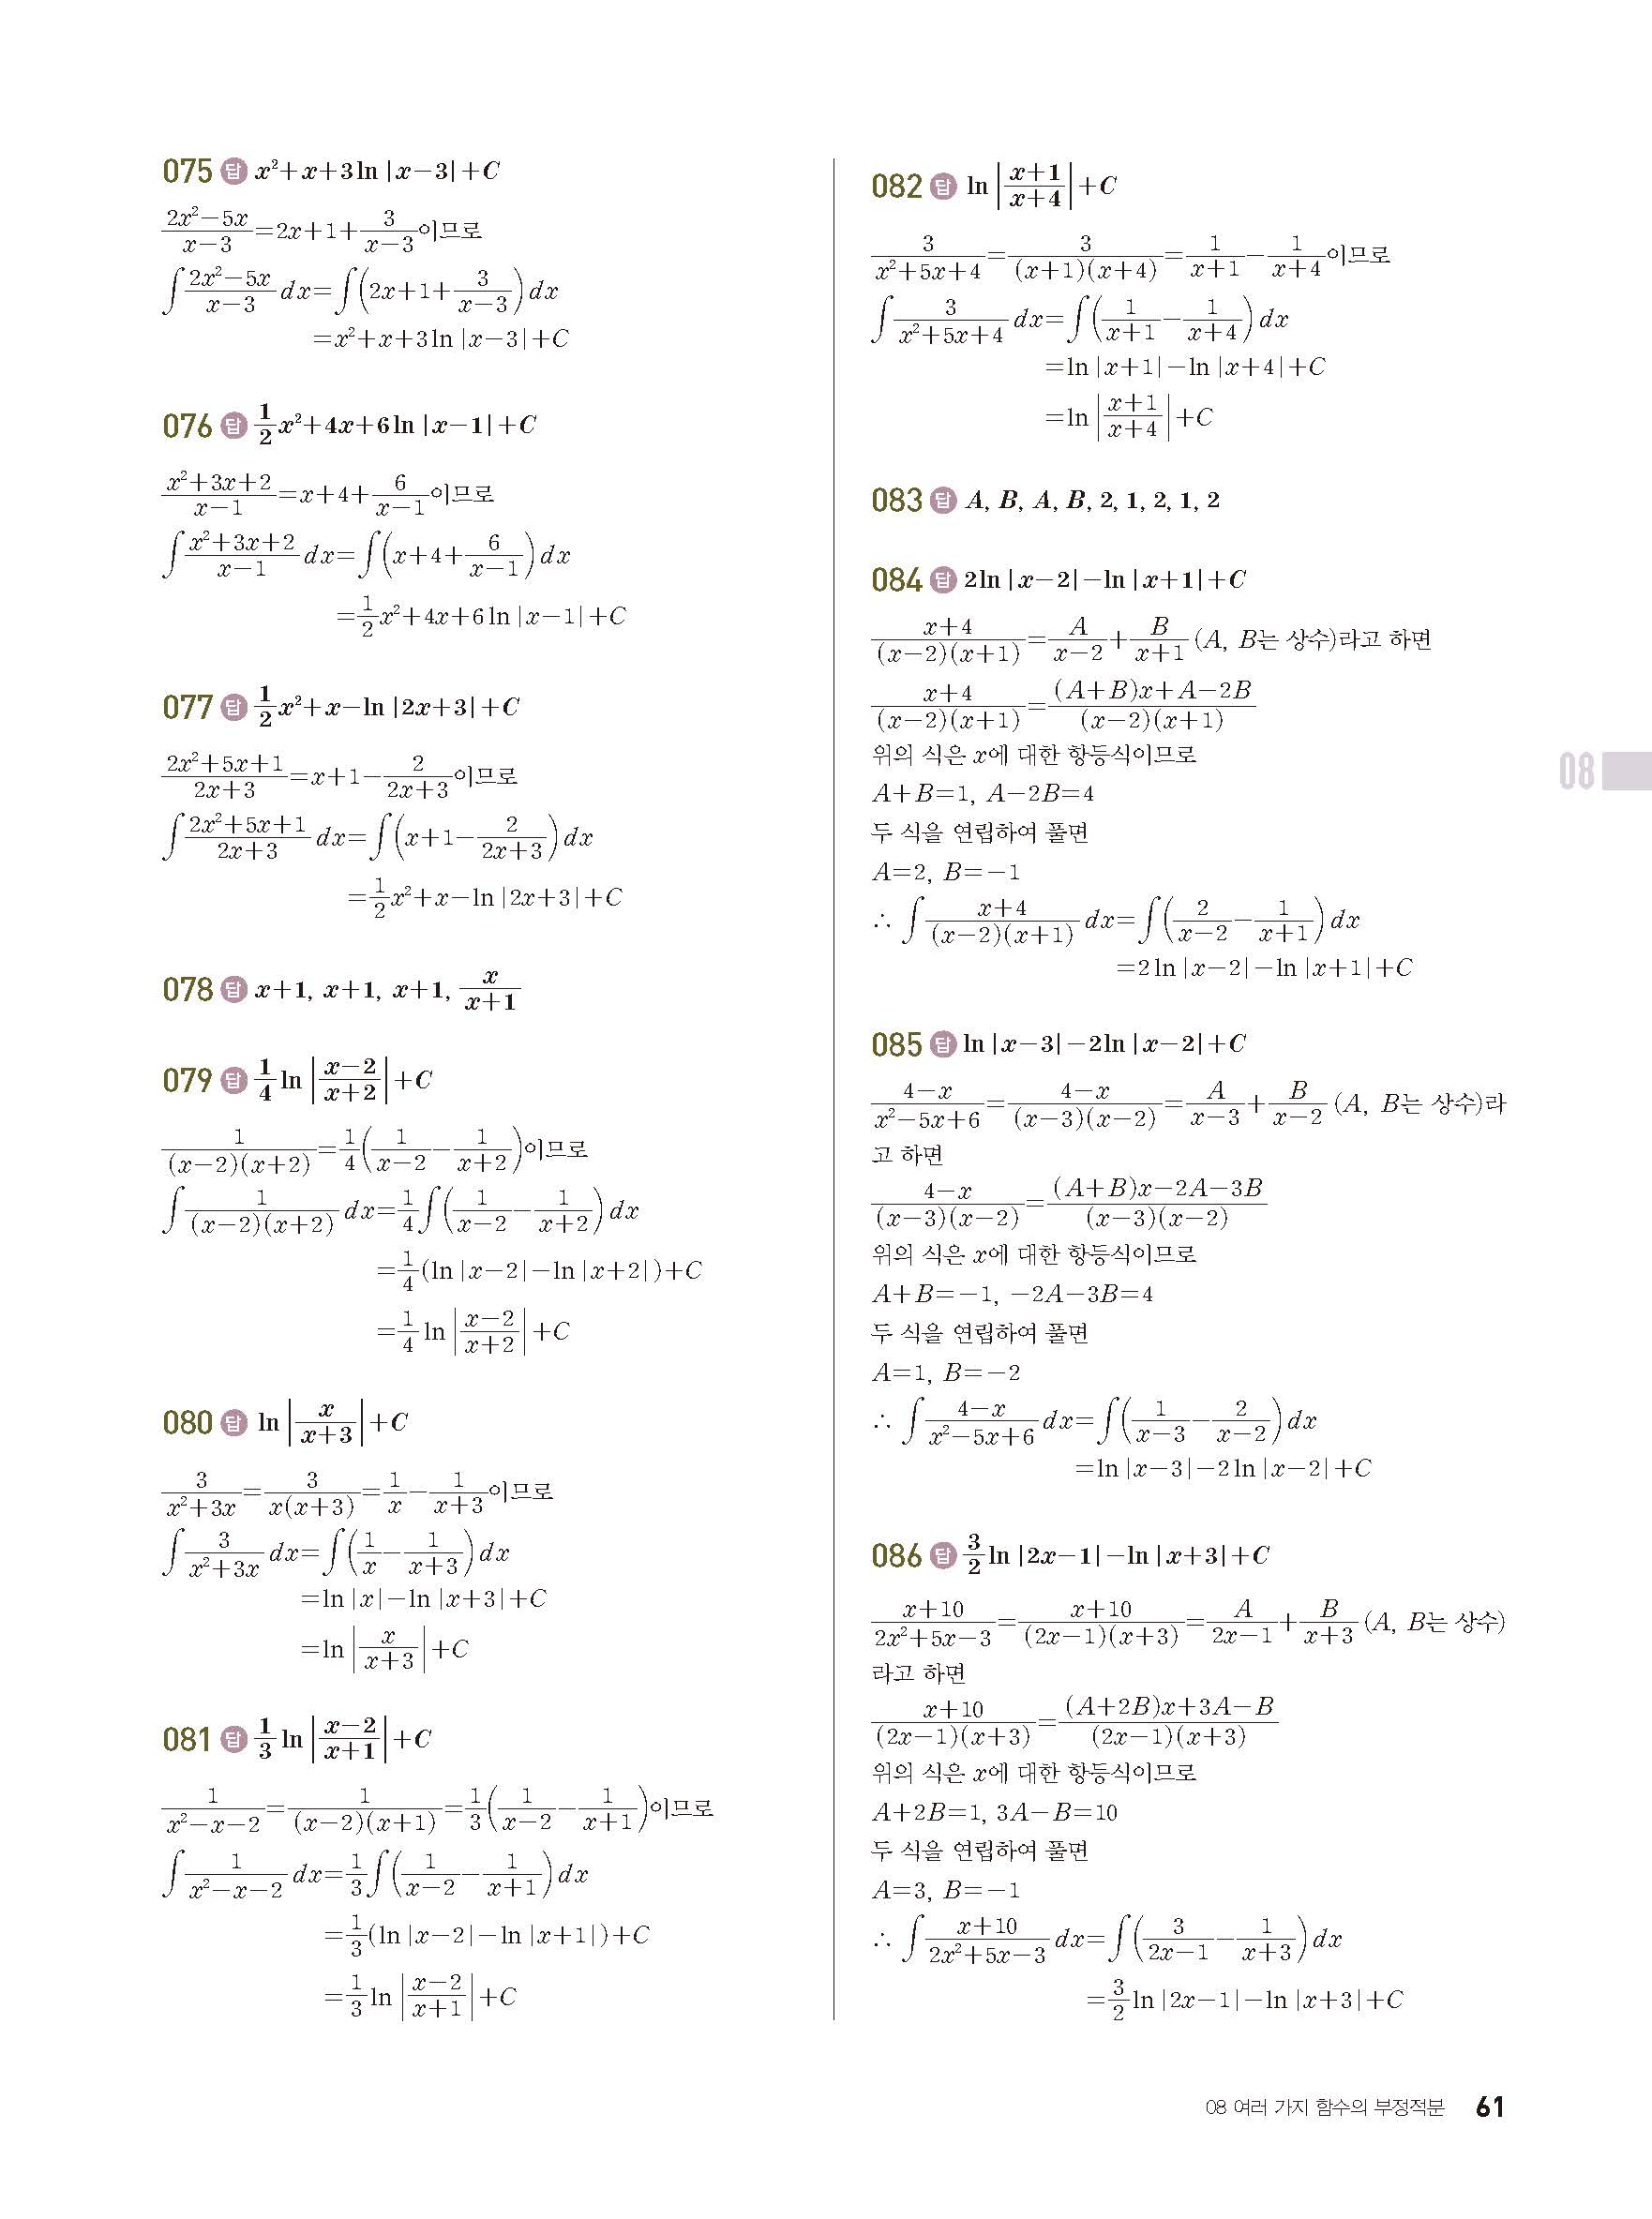 075 답 x²+x+3ln|x-3|+C
(2x²-5x)/(x-3)=2x+1+3/(x-3)이므로
∫(2x²-5x)/(x-3) dx=∫(2x+1+3/(x-3))dx
=x²+x+3ln|x-3|+C
076 답 1/2 x²+4x+6ln|x-1|+C
(x²+3x+2)/(x-1)=x+4+6/(x-1)이므로
∫(x²+3x+2)/(x-1) dx=∫(x+4+6/(x-1))dx
=1/2 x²+4x+6ln|x-1|+C
077 답 1/2 x²+x-ln|2x+3|+C
(2x²+5x+1)/(2x+3)=x+1-2/(2x+3)이므로
∫(2x²+5x+1)/(2x+3) dx=∫(x+1-2/(2x+3))dx
=1/2 x²+x-ln|2x+3|+C
078 답 x+1, x+1, x+1, x/(x+1)
079 답 1/4 ln|(x-2)/(x+2)|+C
1/((x-2)(x+2))=1/4(1/(x-2)-1/(x+2))이므로
∫1/((x-2)(x+2)) dx=1/4∫(1/(x-2)-1/(x+2))dx
=1/4(ln|x-2|-ln|x+2|)+C
=1/4 ln|(x-2)/(x+2)|+C
080 답 ln|x/(x+3)|+C
3/(x²+3x)=3/(x(x+3))=1/x-1/(x+3)이므로
∫3/(x²+3x) dx=∫(1/x-1/(x+3))dx
=ln|x|-ln|x+3|+C
=ln|x/(x+3)|+C
081 답 1/3 ln|(x-2)/(x+1)|+C
1/(x²-x-2)=1/((x-2)(x+1))=1/3(1/(x-2)-1/(x+1))이므로
∫1/(x²-x-2) dx=1/3∫(1/(x-2)-1/(x+1))dx
=1/3(ln|x-2|-ln|x+1|)+C
=1/3 ln|(x-2)/(x+1)|+C
082 답 ln|(x+1)/(x+4)|+C
3/(x²+5x+4)=3/((x+1)(x+4))=1/(x+1)-1/(x+4)이므로
∫3/(x²+5x+4) dx=∫(1/(x+1)-1/(x+4))dx
=ln|x+1|-ln|x+4|+C
=ln|(x+1)/(x+4)|+C
083 답 A, B, A, B, 2, 1, 2, 1, 2
084 답 2ln|x-2|-ln|x+1|+C
(x+4)/((x-2)(x+1))=A/(x-2)+B/(x+1) (A, B는 상수)라고 하면
(x+4)/((x-2)(x+1))=((A+B)x+A-2B)/((x-2)(x+1))
위의 식은 x에 대한 항등식이므로
A+B=1, A-2B=4
두 식을 연립하여 풀면
A=2, B=-1
∴ ∫(x+4)/((x-2)(x+1)) dx=∫(2/(x-2)-1/(x+1))dx
=2ln|x-2|-ln|x+1|+C
085 답 ln|x-3|-2ln|x-2|+C
(4-x)/(x²-5x+6)=(4-x)/((x-3)(x-2))=A/(x-3)+B/(x-2) (A, B는 상수)라
고 하면
(4-x)/((x-3)(x-2))=((A+B)x-2A-3B)/((x-3)(x-2))
위의 식은 x에 대한 항등식이므로
A+B=-1, -2A-3B=4
두 식을 연립하여 풀면
A=1, B=-2
∴ ∫(4-x)/(x²-5x+6) dx=∫(1/(x-3)-2/(x-2))dx
=ln|x-3|-2ln|x-2|+C
086 답 3/2 ln|2x-1|-ln|x+3|+C
(x+10)/(2x²+5x-3)=(x+10)/((2x-1)(x+3))=A/(2x-1)+B/(x+3) (A, B는 상수)
라고 하면
(x+10)/((2x-1)(x+3))=((A+2B)x+3A-B)/((2x-1)(x+3))
위의 식은 x에 대한 항등식이므로
A+2B=1, 3A-B=10
두 식을 연립하여 풀면
A=3, B=-1
∴ ∫(x+10)/(2x²+5x-3) dx=∫(3/(2x-1)-1/(x+3))dx
=3/2 ln|2x-1|-ln|x+3|+C
08
08 여러 가지 함수의 부정적분 61